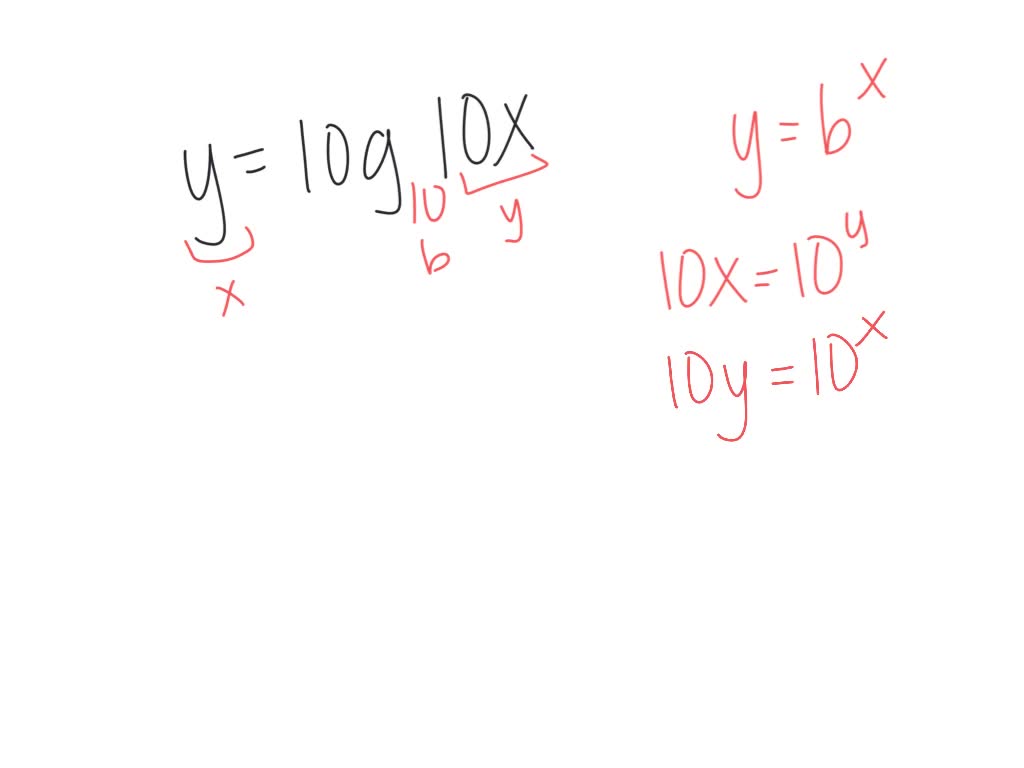 y = log 10x
10 y
b
x
y = b^x
10x = 10^y
10y = 10^x